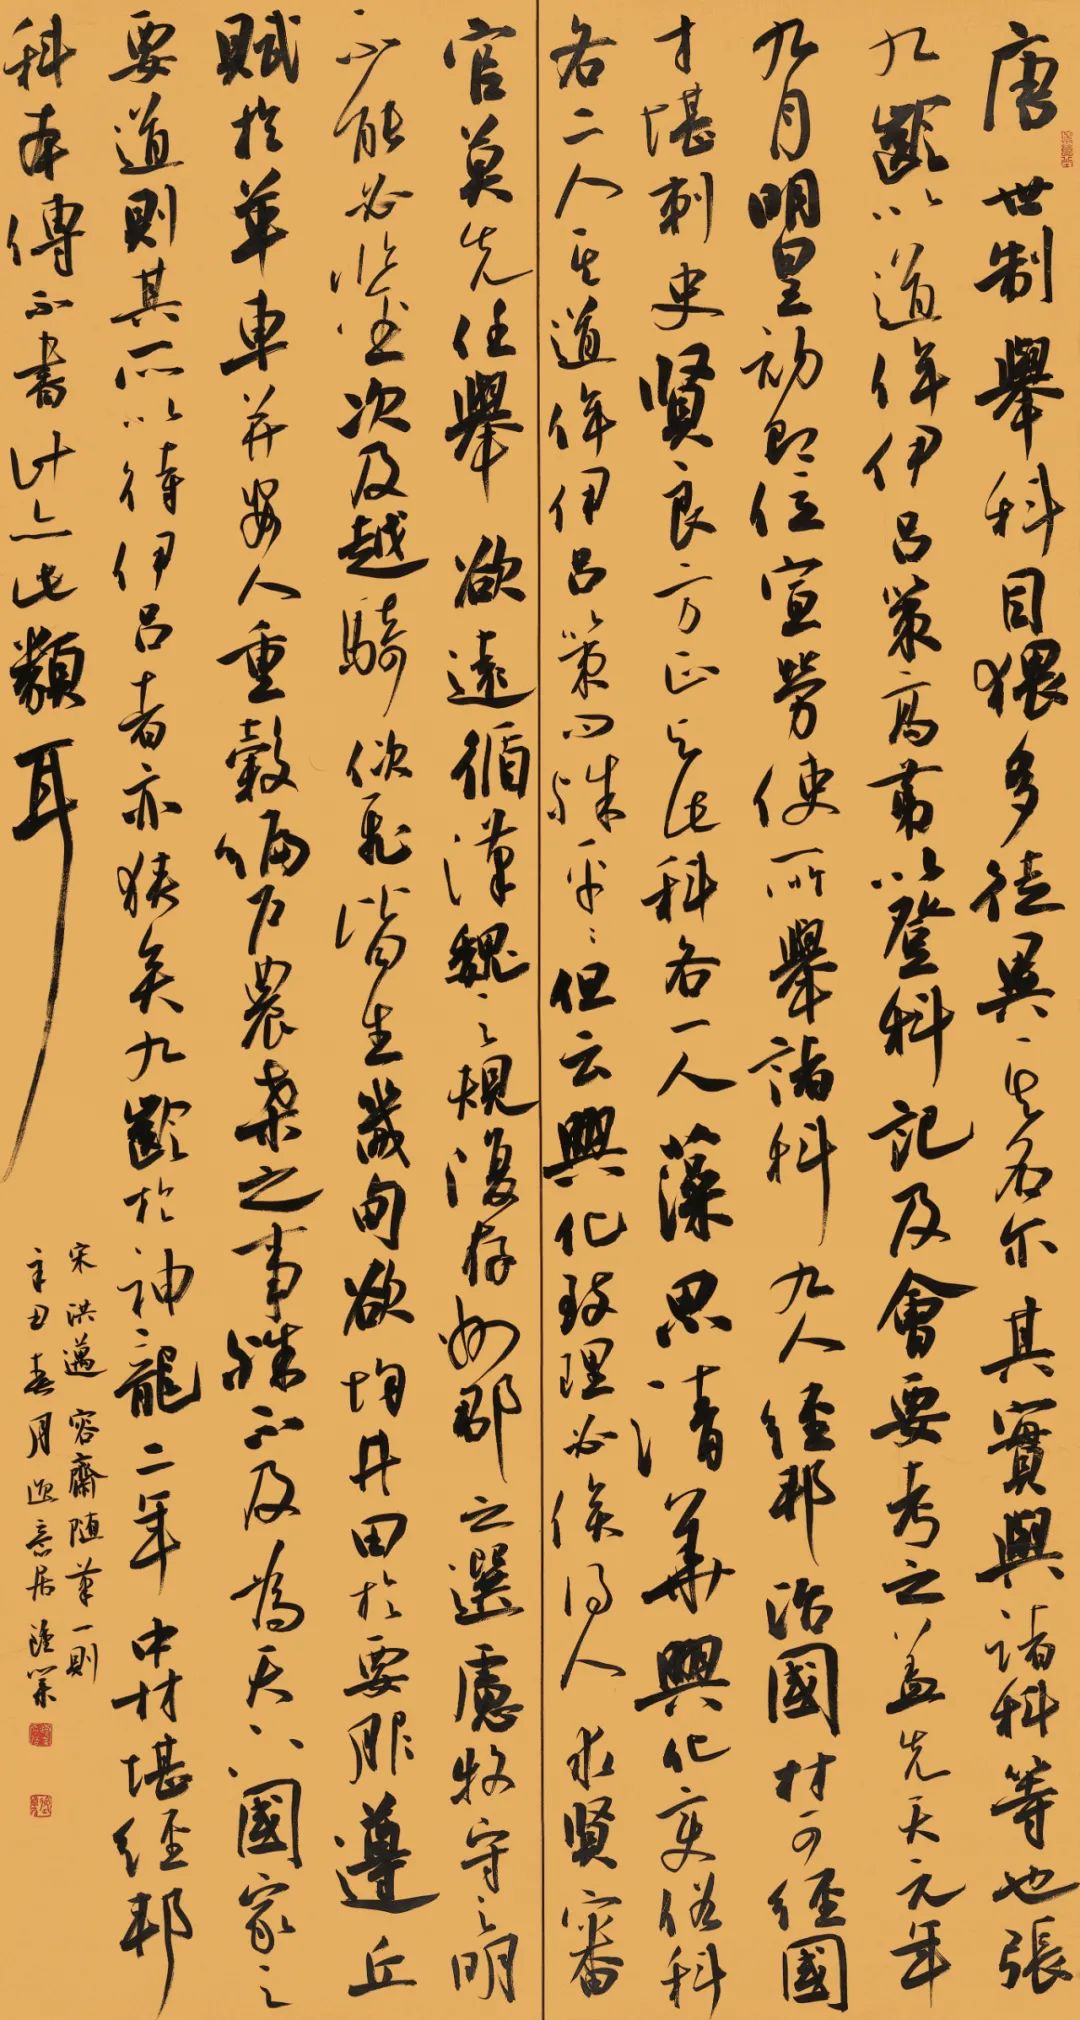 唐世制舉科目猥多徒異其名尔其實與諸科等也張
九齡以道侔伊吕策高第以登科記及會要考之盖先天元年
九月明皇初即位宣勞使所舉諸科九人經邦治國材可經國
才堪刺史賢良方正与此科各一人藻思清華興化变俗科
各二人其道侔伊吕策问殊平平但云興化致理必俟得人求賢審
官莫先任舉欲遠循漢魏之規復存州郡之選慮牧守之明
不能必鉴次及越騎佽飛皆出畿甸欲均井田於要服遵丘
賦於革車并安人重穀编户農桑之事殊不及為天下國家之
要道則其所以待伊吕者亦狭矣九齡於神龍二年中材堪經邦
科本傳不書计亦此類耳
宋洪邁容齋随筆一則
辛丑春月逸意居